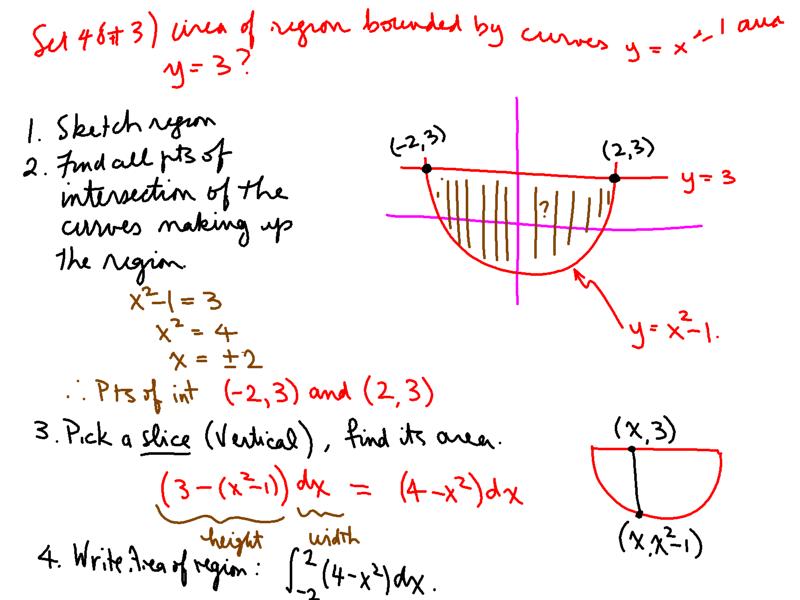 area of region bounded by curves y = x²-1 and
y = 3?
1. Sketch region
2. Find all pts of
intersection of the
curves making up
the region.
x²-1 = 3
x² = 4
x = ±2
∴ Pts of int (-2,3) and (2,3)
(-2,3)
(2,3)
y = 3
?
y = x²-1.
3. Pick a slice (Vertical), find its area.
(3-(x²-1)) dx = (4-x²)dx
height width
(x,3)
(x,x²-1)
4. Write Area of region: ∫₋₂² (4-x²)dx.